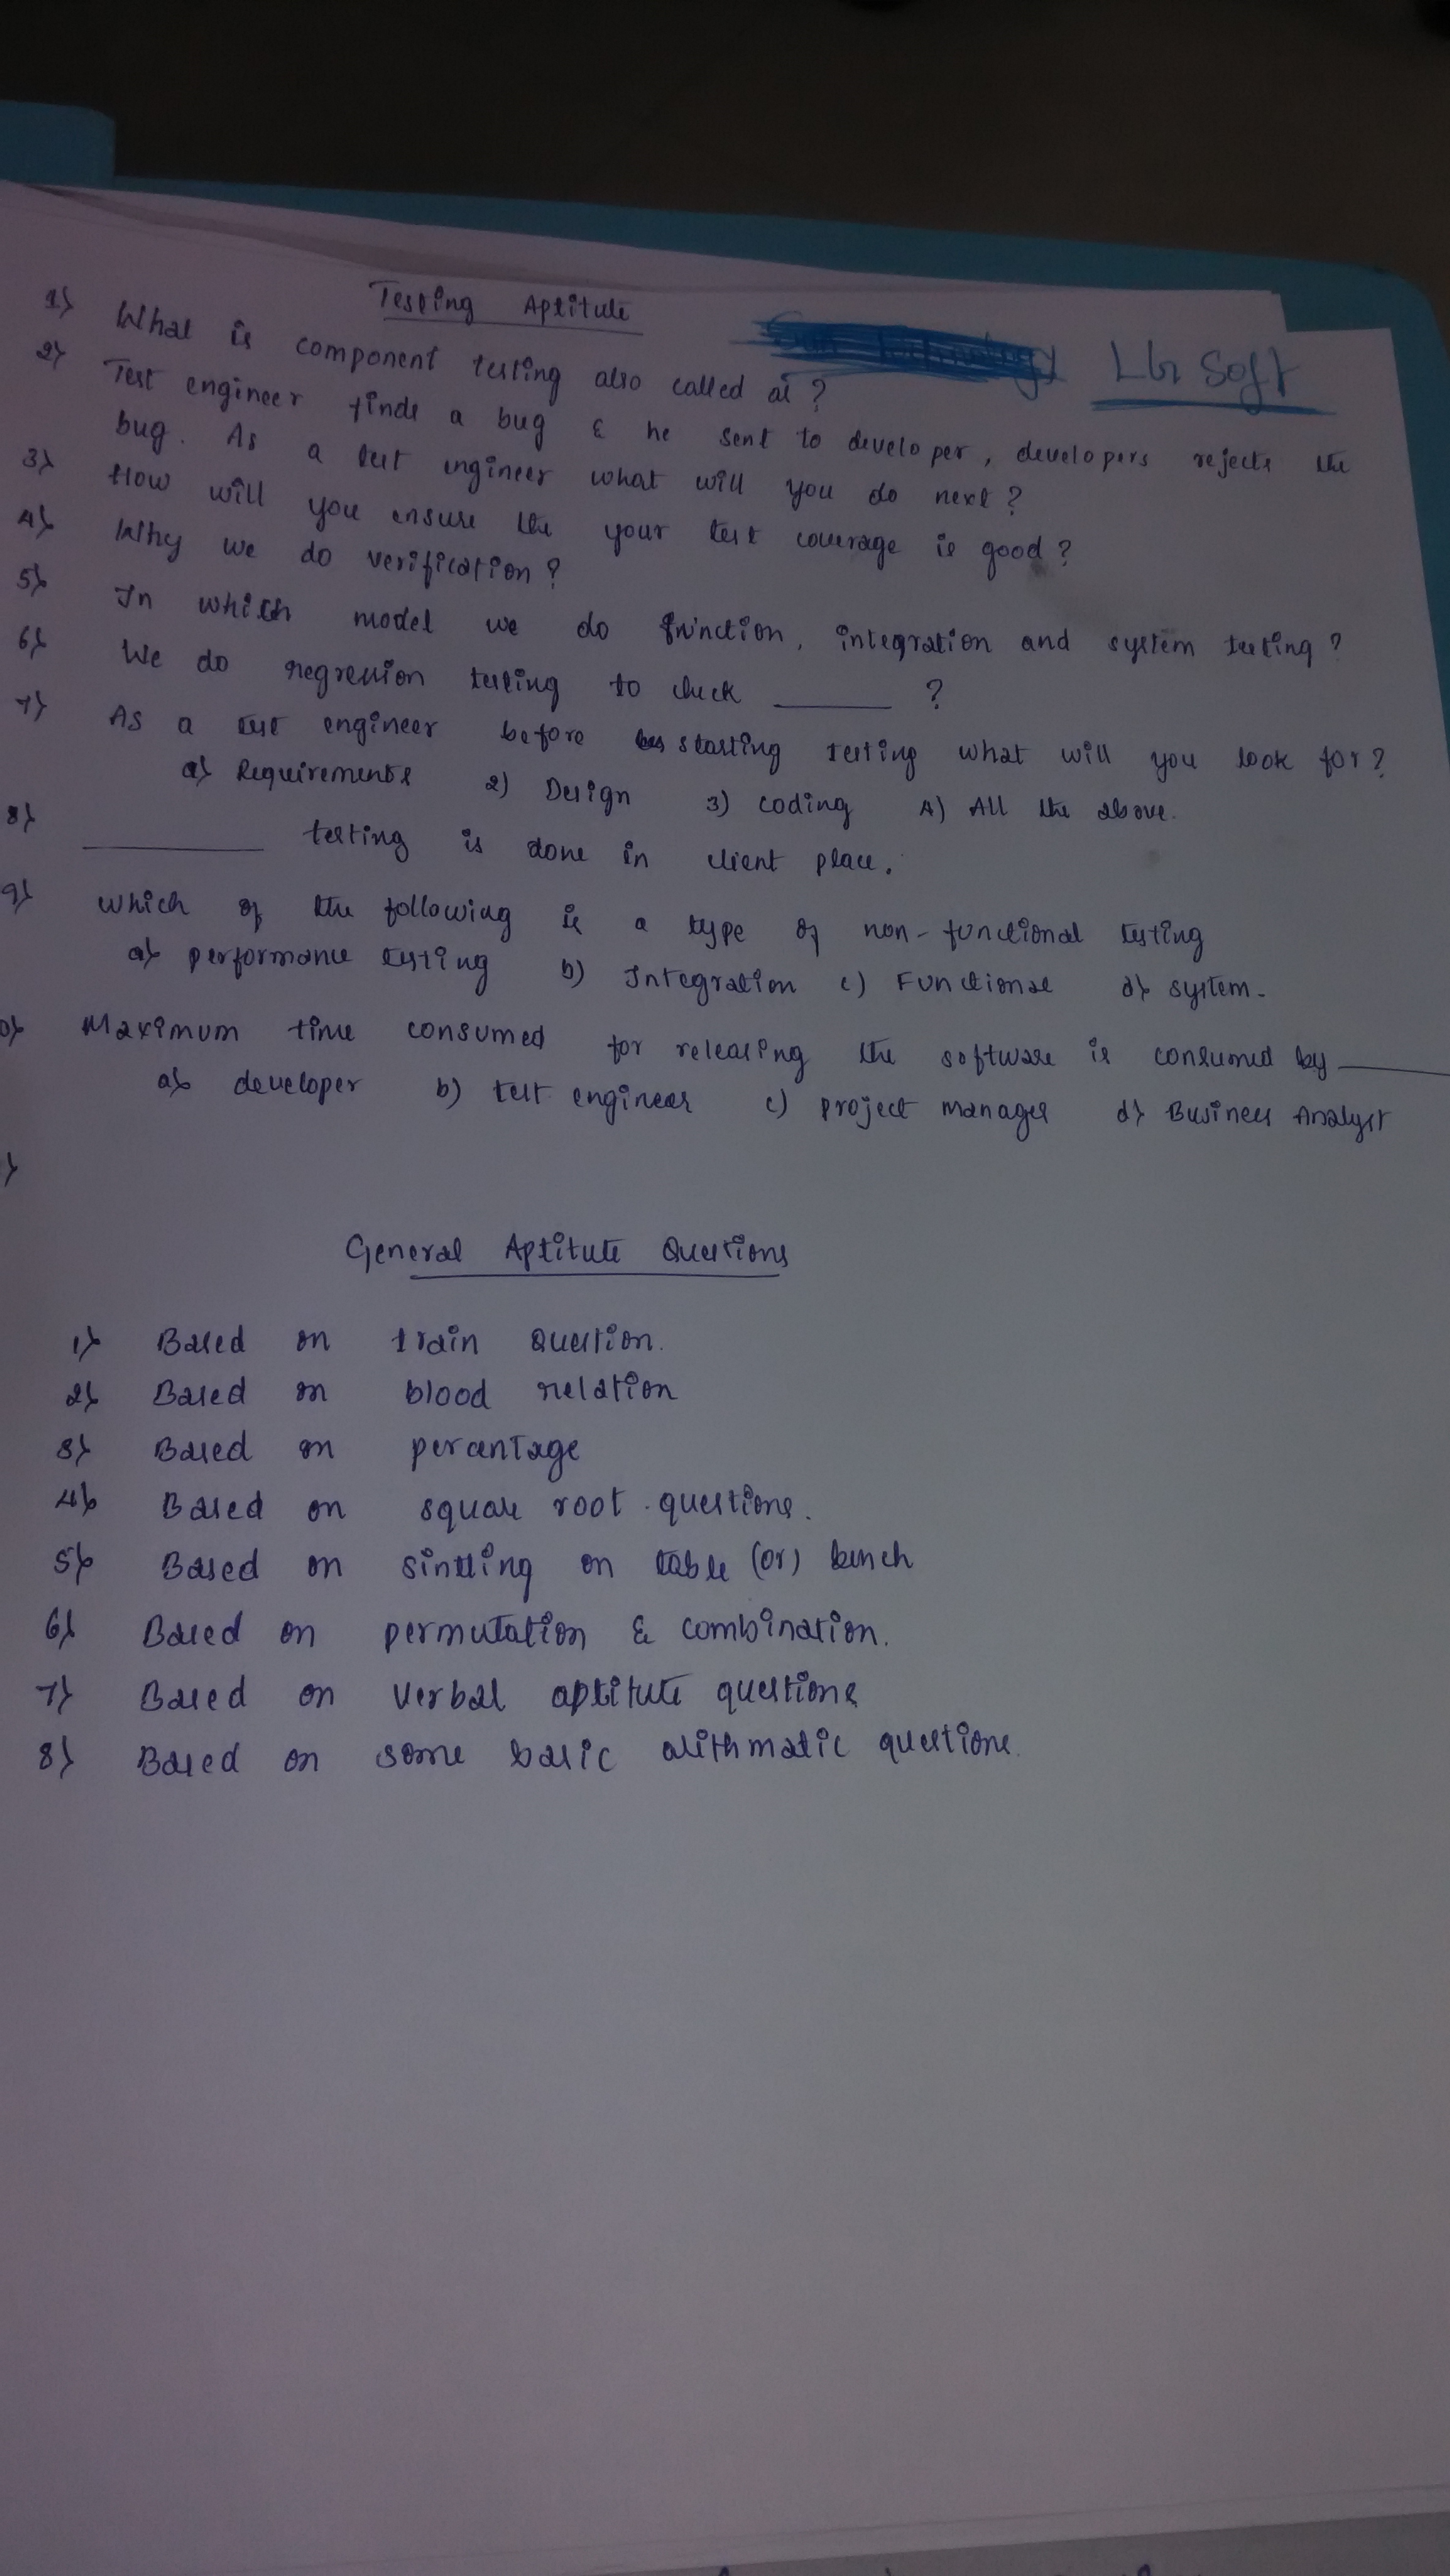 Testing Aptitute
LG Soft
1) What is component testing also called as ?
2) Test engineer finds a bug & he sent to developer, developers rejects the
bug. As a test engineer what will you do next ?
3) How will you ensure the your test coverage is good ?
4) Why we do verification ?
5) In which model we do function, integration and system testing ?
6) We do regression testing to check ______ ?
7) As a test engineer before starting testing what will you look for ?
a) Requirements 2) Design 3) coding 4) All the above.
8) ________ testing is done in client place.
9) which of the following is a type of non-functional testing
a) performance testing b) Integration c) Functional d) system.
0) Maximum time consumed for releasing the software is consumed by ______
a) developer b) test engineer c) project manager d) Business Analyst
)
General Aptitute Questions
1) Based on train question.
2) Based on blood relation
3) Based on percentage
4) Based on square root questions.
5) Based on sintting on table (or) bench
6) Based on permutation & combination.
7) Based on verbal aptitute questions
8) Based on some basic arithmatic questions.